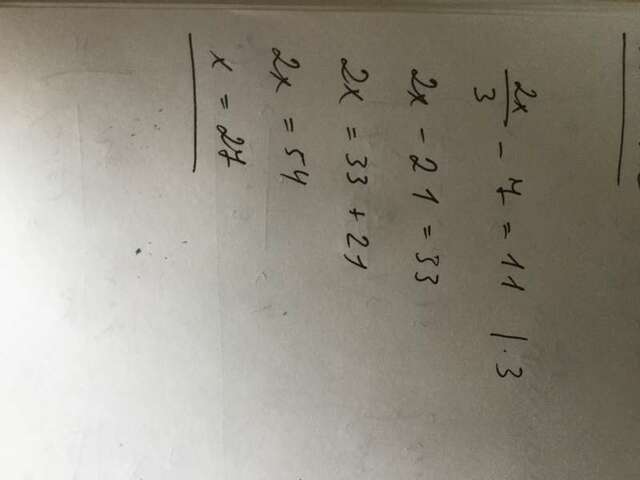 2x/3 - 7 = 11 | · 3
2x - 21 = 33
2x = 33 + 21
2x = 54
x = 27